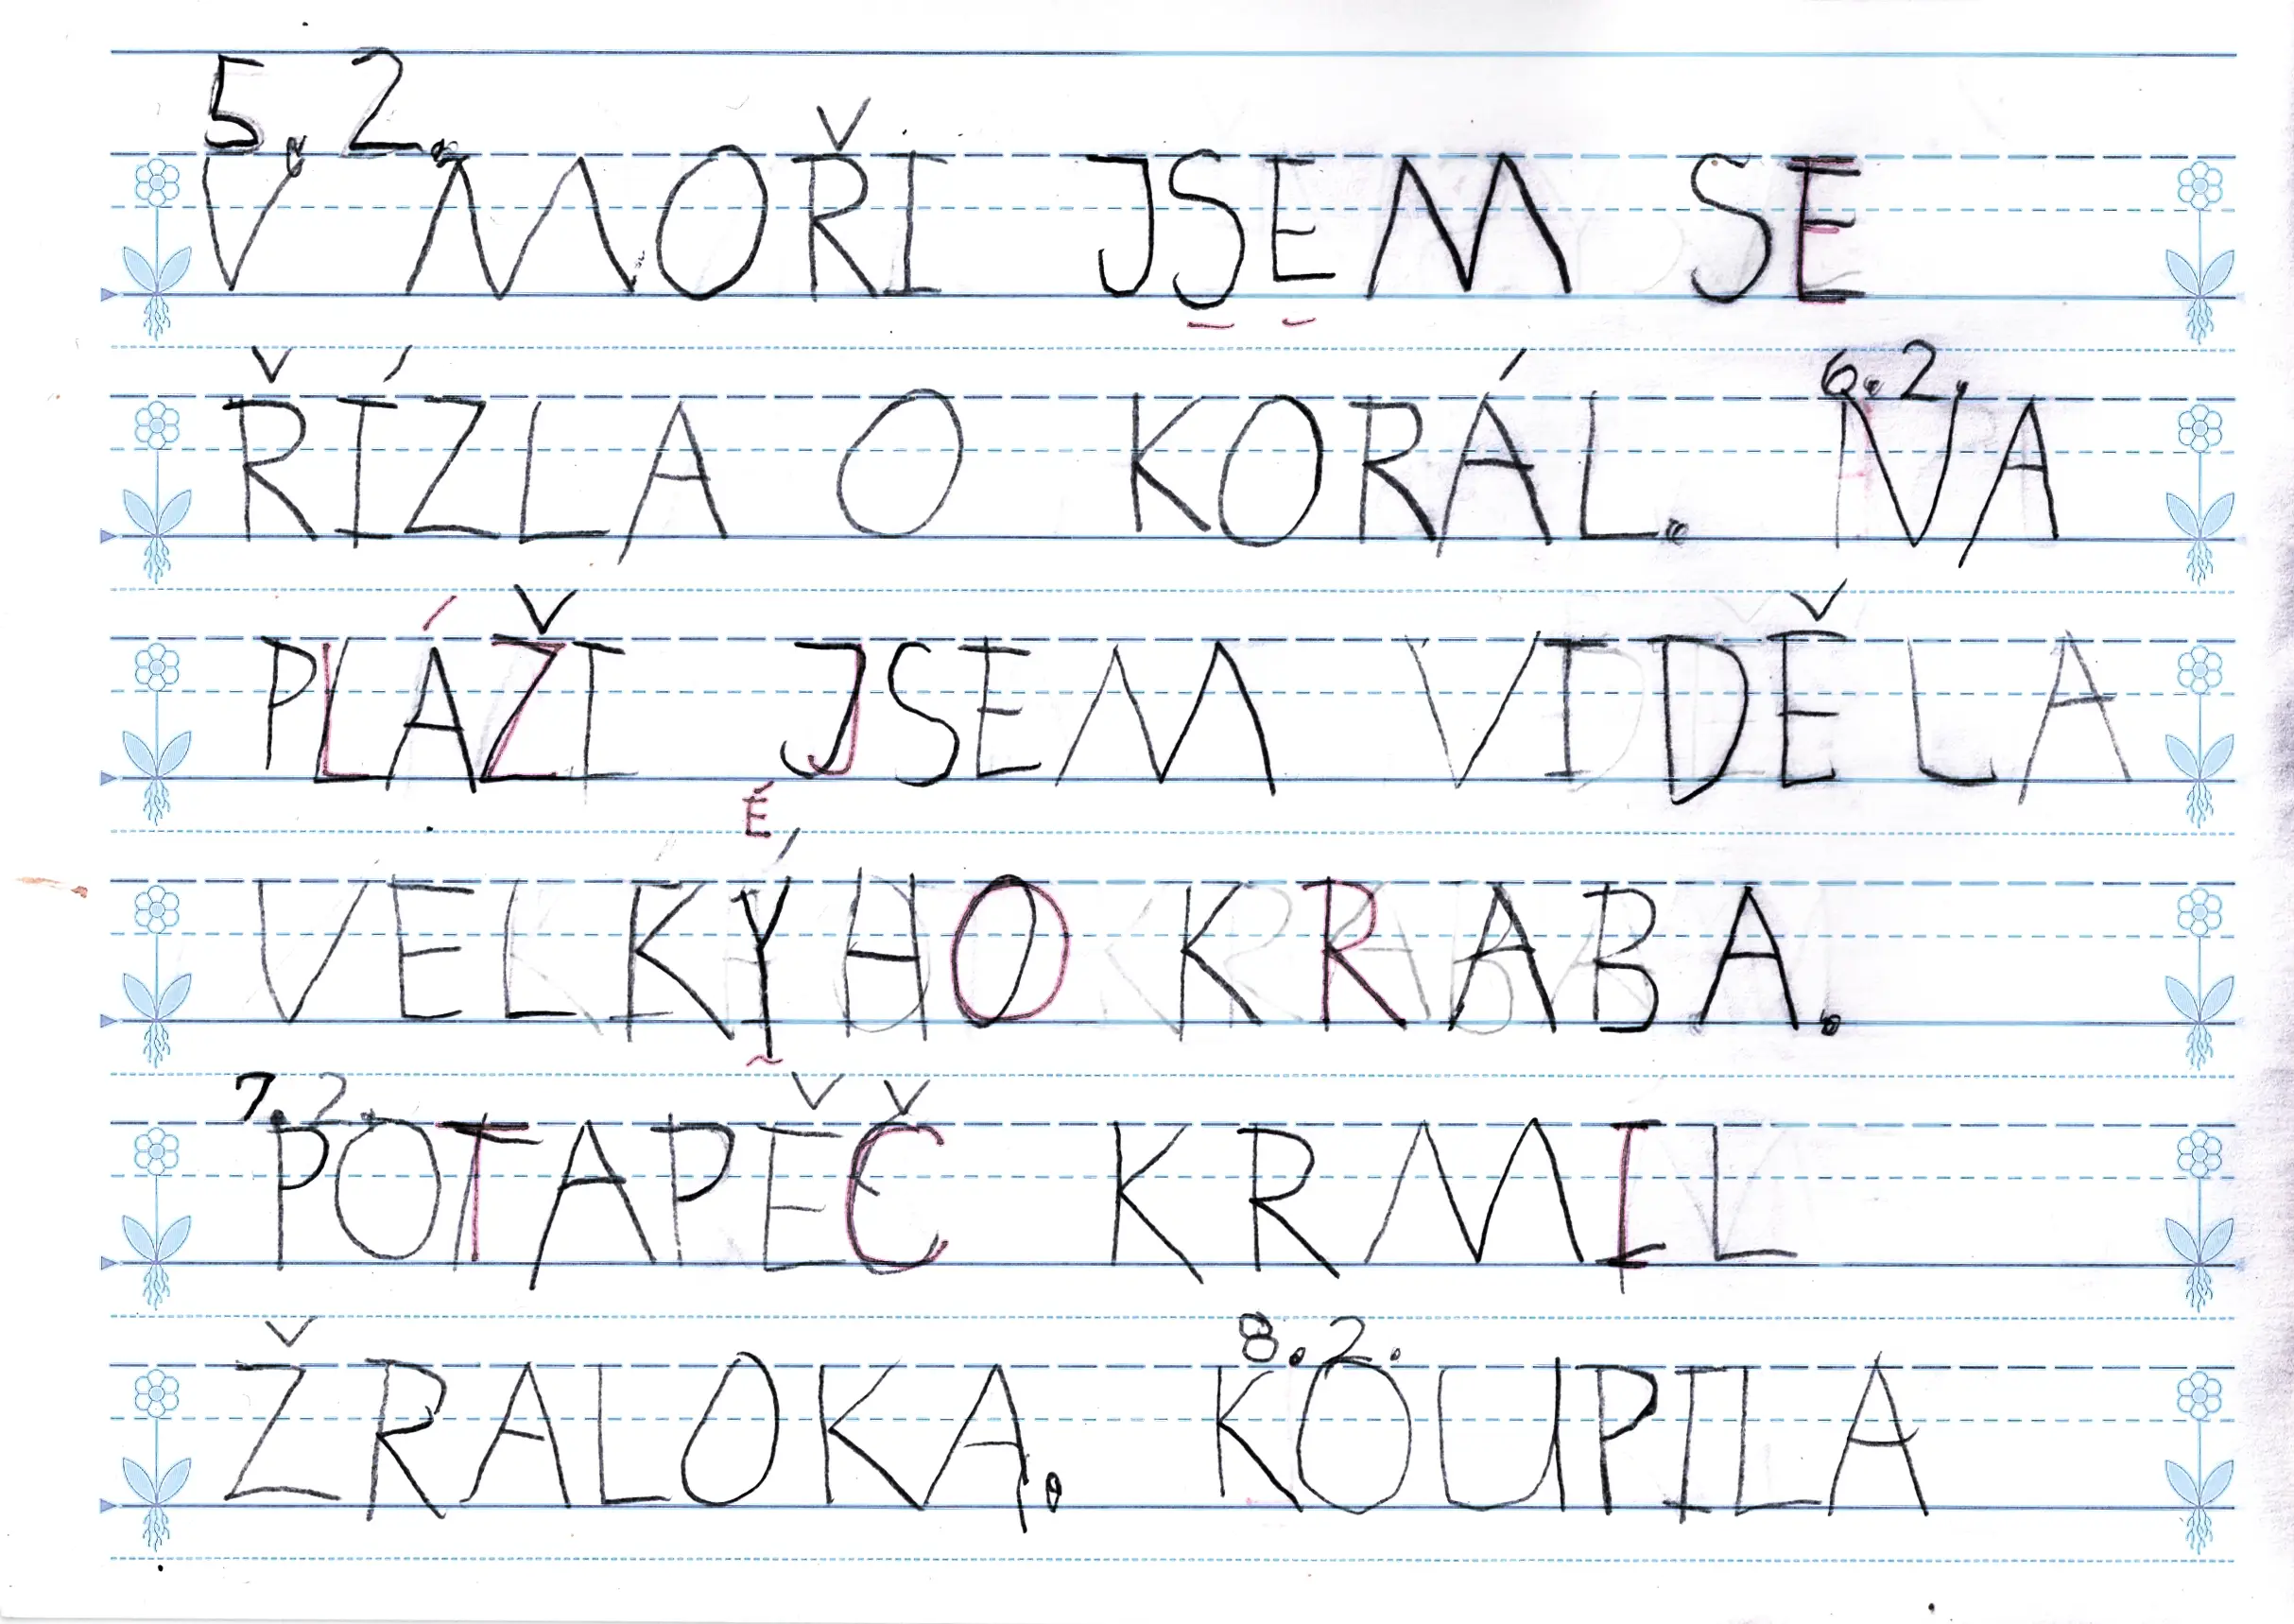 5. 2.
V MOŘI JSEM SE
6. 2.
ŘÍZLA O KORÁL. NA
PLÁŽI JSEM VIDĚLA
É
VELKÝHO KRABA.
7. 2.
POTAPĚČ KRMIL
8. 2.
ŽRALOKA. KOUPILA